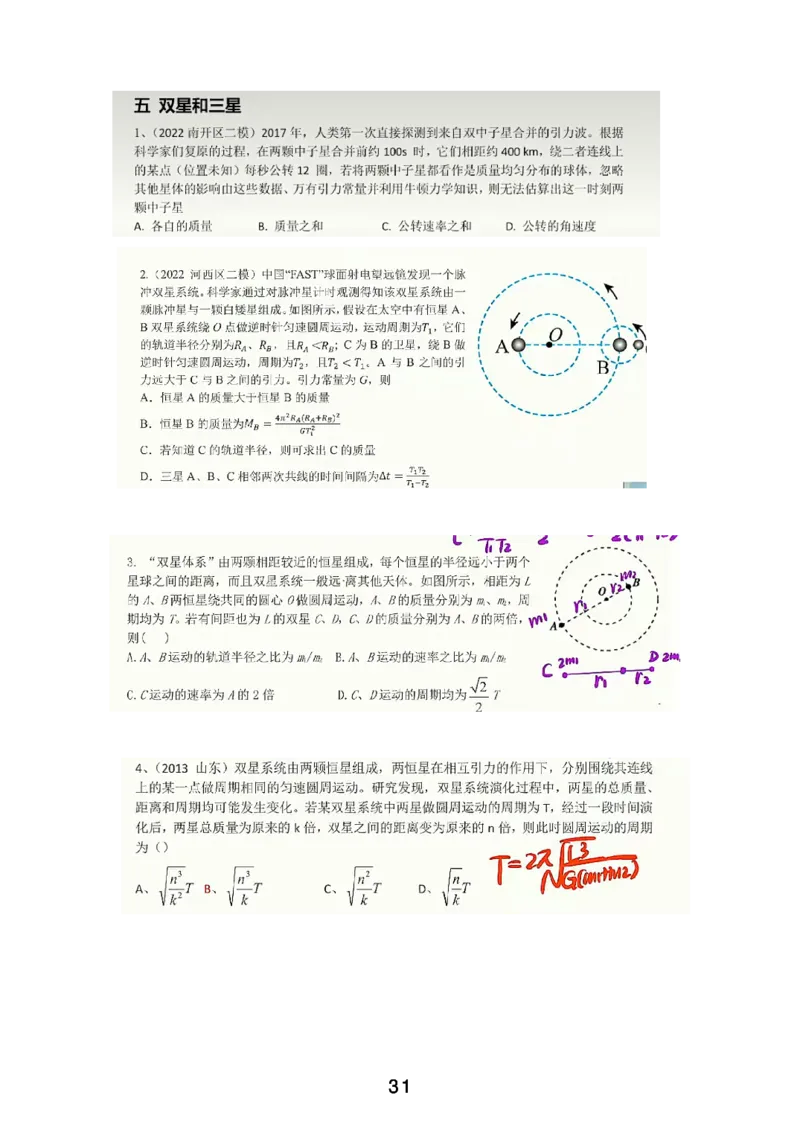 五 双星和三星
1、（2022南开区二模）2017年，人类第一次直接探测到来自双中子星合并的引力波。根据
科学家们复原的过程，在两颗中子星合并前约100s 时，它们相距约400 km，绕二者连线上
的某点（位置未知）每秒公转12 圈，若将两颗中子星都看作是质量均匀分布的球体，忽略
其他星体的影响由这些数据、万有引力常量并利用牛顿力学知识，则无法估算出这一时刻两
颗中子星
A. 各自的质量 B. 质量之和 C. 公转速率之和 D. 公转的角速度
2.（2022 河西区二模）中国“FAST”球面射电望远镜发现一个脉
冲双星系统。科学家通过对脉冲星计时观测得知该双星系统由一
颗脉冲星与一颗白矮星组成。如图所示，假设在太空中有恒星 A、
B 双星系统绕 O 点做逆时针匀速圆周运动，运动周期为T₁，它们
的轨道半径分别为R_A、R_B，且R_A<R_B；C 为 B 的卫星，绕 B 做
逆时针匀速圆周运动，周期为T₂，且T₂<T₁。A 与 B 之间的引
力远大于 C 与 B 之间的引力。引力常量为 G，则
A．恒星 A 的质量大于恒星 B 的质量
B．恒星 B 的质量为M_B = 4π²R_A(R_A+R_B)²/GT₁²
C．若知道 C 的轨道半径，则可求出 C 的质量
D．三星 A、B、C 相邻两次共线的时间间隔为Δt = T₁T₂/T₁−T₂
A O B
T₁T₂
3. “双星体系”由两颗相距较近的恒星组成，每个恒星的半径远小于两个
星球之间的距离，而且双星系统一般远离其他天体。如图所示，相距为 L
的 A、B 两恒星绕共同的圆心 O 做圆周运动，A、B 的质量分别为 m₁、m₂，周
期均为 T。若有间距也为 L 的双星 C、D，C、D 的质量分别为 A、B 的两倍，
则( )
A.A、B 运动的轨道半径之比为 m₁/m₂ B.A、B 运动的速率之比为 m₁/m₂
C.C 运动的速率为 A 的 2 倍 D.C、D 运动的周期均为 √2/2 T
m2
O r2 B
r1
m1 A
C 2m1 D 2m
r1 r2
4、（2013 山东）双星系统由两颗恒星组成，两恒星在相互引力的作用下，分别围绕其连线
上的某一点做周期相同的匀速圆周运动。研究发现，双星系统演化过程中，两星的总质量、
距离和周期均可能发生变化。若某双星系统中两星做圆周运动的周期为 T，经过一段时间演
化后，两星总质量为原来的 k 倍，双星之间的距离变为原来的 n 倍，则此时圆周运动的周期
为（）
A、√(n³/k²) T B、√(n³/k) T C、√(n²/k) T D、√(n/k) T
T=2π√(L3/G(m1+m2))
31